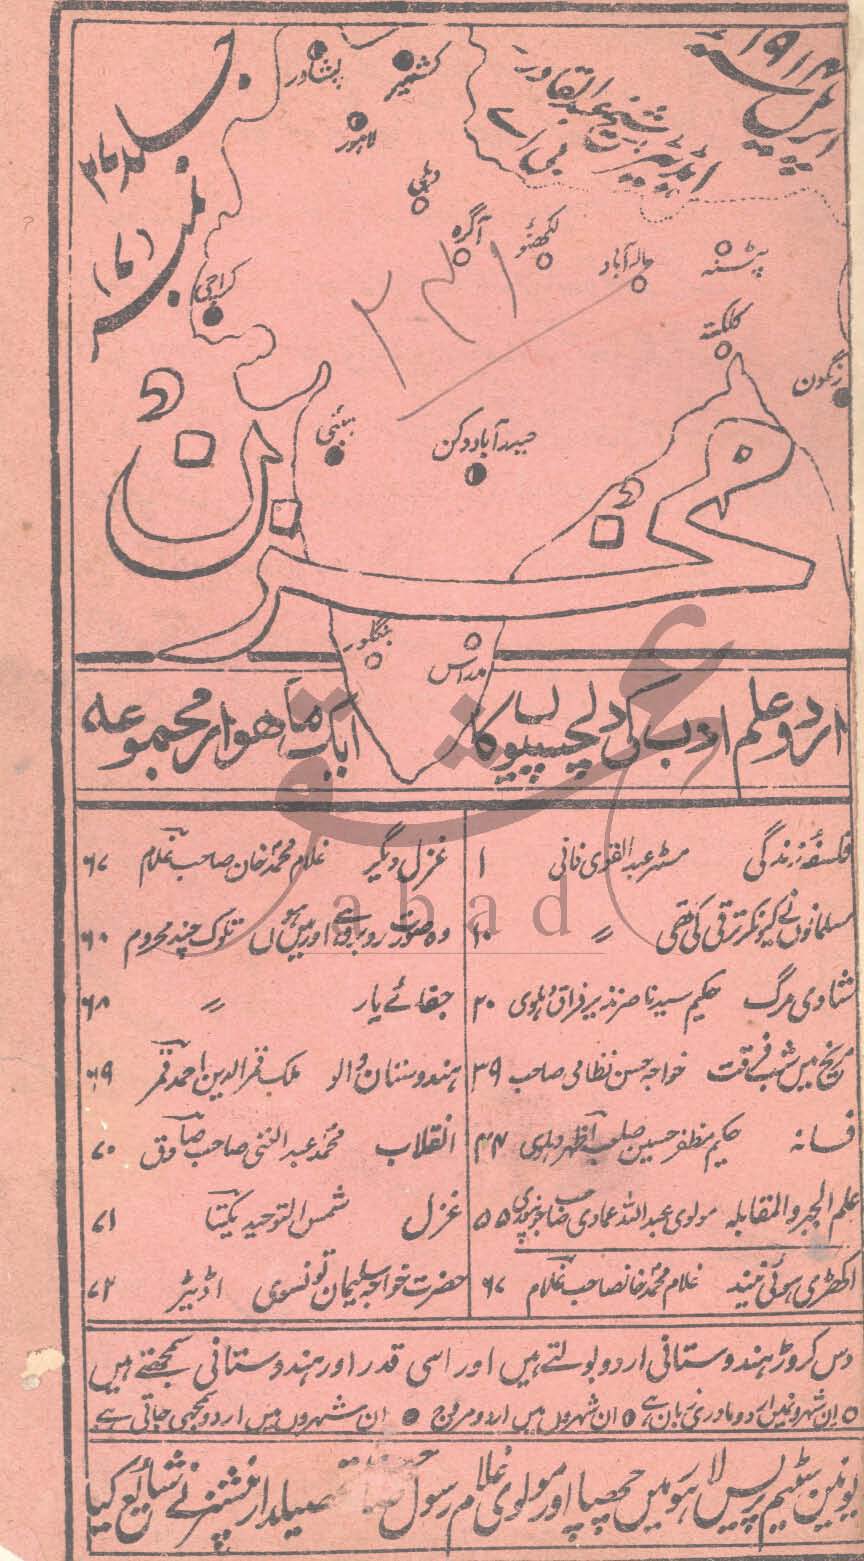 اپریل ۱۹۱۴
اڈیٹر شیخ عبدالقادر
بی اے
جلد ۲۶
نمبر (۷)
پشاور
کشمیر
لاہور
دہلی
آگرہ
لکھنؤ
الہ آباد
پٹنہ
کراچی
کلکتہ
رنگون
بمبئی
حیدرآباد دکن
۲۳۱
مخزن
بنگلور
مدراس
اردو علم ادب کی دلچسپیوں کا ایک ماہوار مجموعہ
فلسفۂ زندگی مسٹر عبدالقوی فانی ۱
مسلمانوں نے کیونکر ترقی کی تھی 〃 ۱۰
شادی مرگ حکیم سید ناصر نذیر فراق دہلوی ۲۰
مریخ میں شب فرقت خواجہ حسن نظامی صاحب ۳۹
فسانہ حکیم مظفر حسین صاحب اظہر دہلوی ۴۴
علم الجبر والمقابلہ مولوی عبداللہ عمادی صاحب جونپوری ۵۵
اکھڑی ہوئی نیند غلام محمد خانصاحب غلام ۶۷
غزل دیگر غلام محمد خان صاحب غلام ۶۷
وہ صورت روبرو ہے اور میں ہوں تلوک چند محروم ۶۰
جفائے یار 〃 ۶۸
ہندوستان والو ملک قمرالدین احمد قمر ۶۹
انقلاب محمد عبدالغنی صاحب صادق ۷۰
غزل شمس التوحید یکتا ۷۱
حضرت خواجہ سلیمان تونسوی اڈیٹر ۷۲
دس کروڑ ہندوستانی اردو بولتے ہیں اور اسی قدر اور ہندوستانی سمجھتے ہیں
○ ان شہرونمیں اردو مادری زبان ہے ◑ ان شہروں میں اردو مروج ● ان شہروں میں اردو سمجھی جاتی ہے
یونین سٹیم پریس لاہور میں چھپا اور مولوی غلام رسول تحصیلدار پنشنر نے شایع کیا
عشق
abad